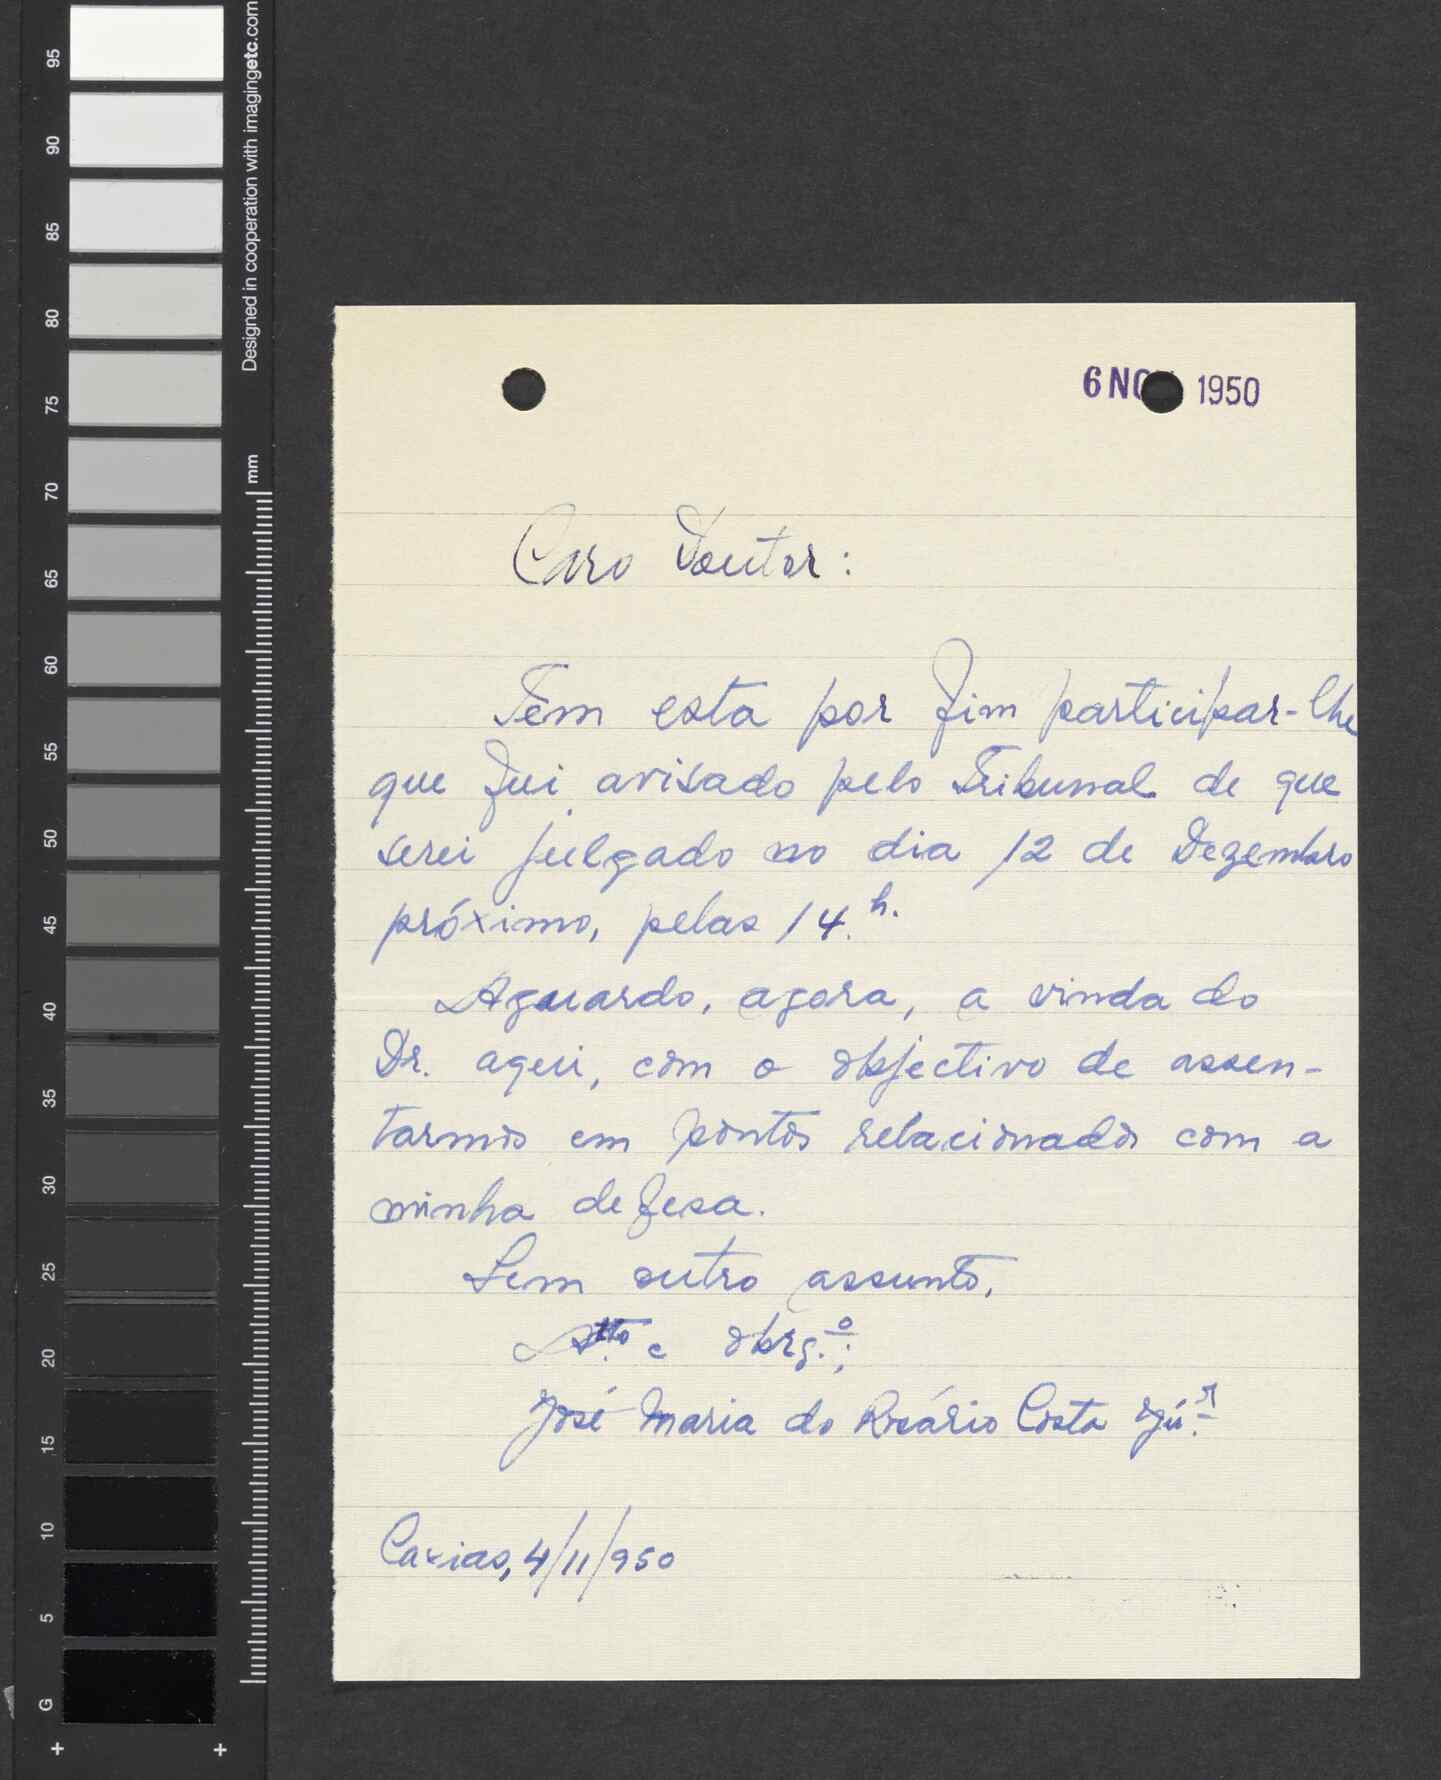 6 NO 1950
Caro Doutor:
Tem esta por fim participar-lhe
que fui avisado pelo Tribunal de que
serei julgado no dia 12 de Dezembro
próximo, pelas 14.h.
Aguardo, agora, a vinda do
Dr. aqui, com o objectivo de assen-
tarmos em pontos relacionados com a
minha defesa.
Sem outro assunto,
Atto. e obrg.º;
José Maria do Rosário Costa Jú.r
Caxias, 4/11/950
Designed in cooperation with imagingetc.com
mm
95
90
85
80
75
70
65
60
55
50
45
40
35
30
25
20
15
10
5
G